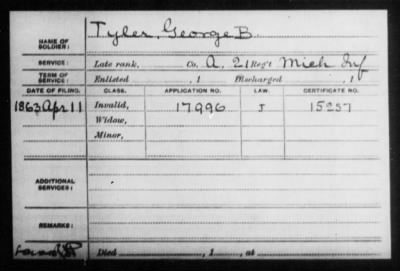 NAME OF SOLDIER: Tyler, George B.
SERVICE: Late rank, Co. A, 21 Reg't Mich Inf
TERM OF SERVICE: Enlisted , 1 Discharged , 1
DATE OF FILING. CLASS. APPLICATION NO. LAW. CERTIFICATE NO.
1863 Apr 11 Invalid, 17996 J 15257
Widow,
Minor,
ADDITIONAL SERVICES:
REMARKS:
Died , 1 , at